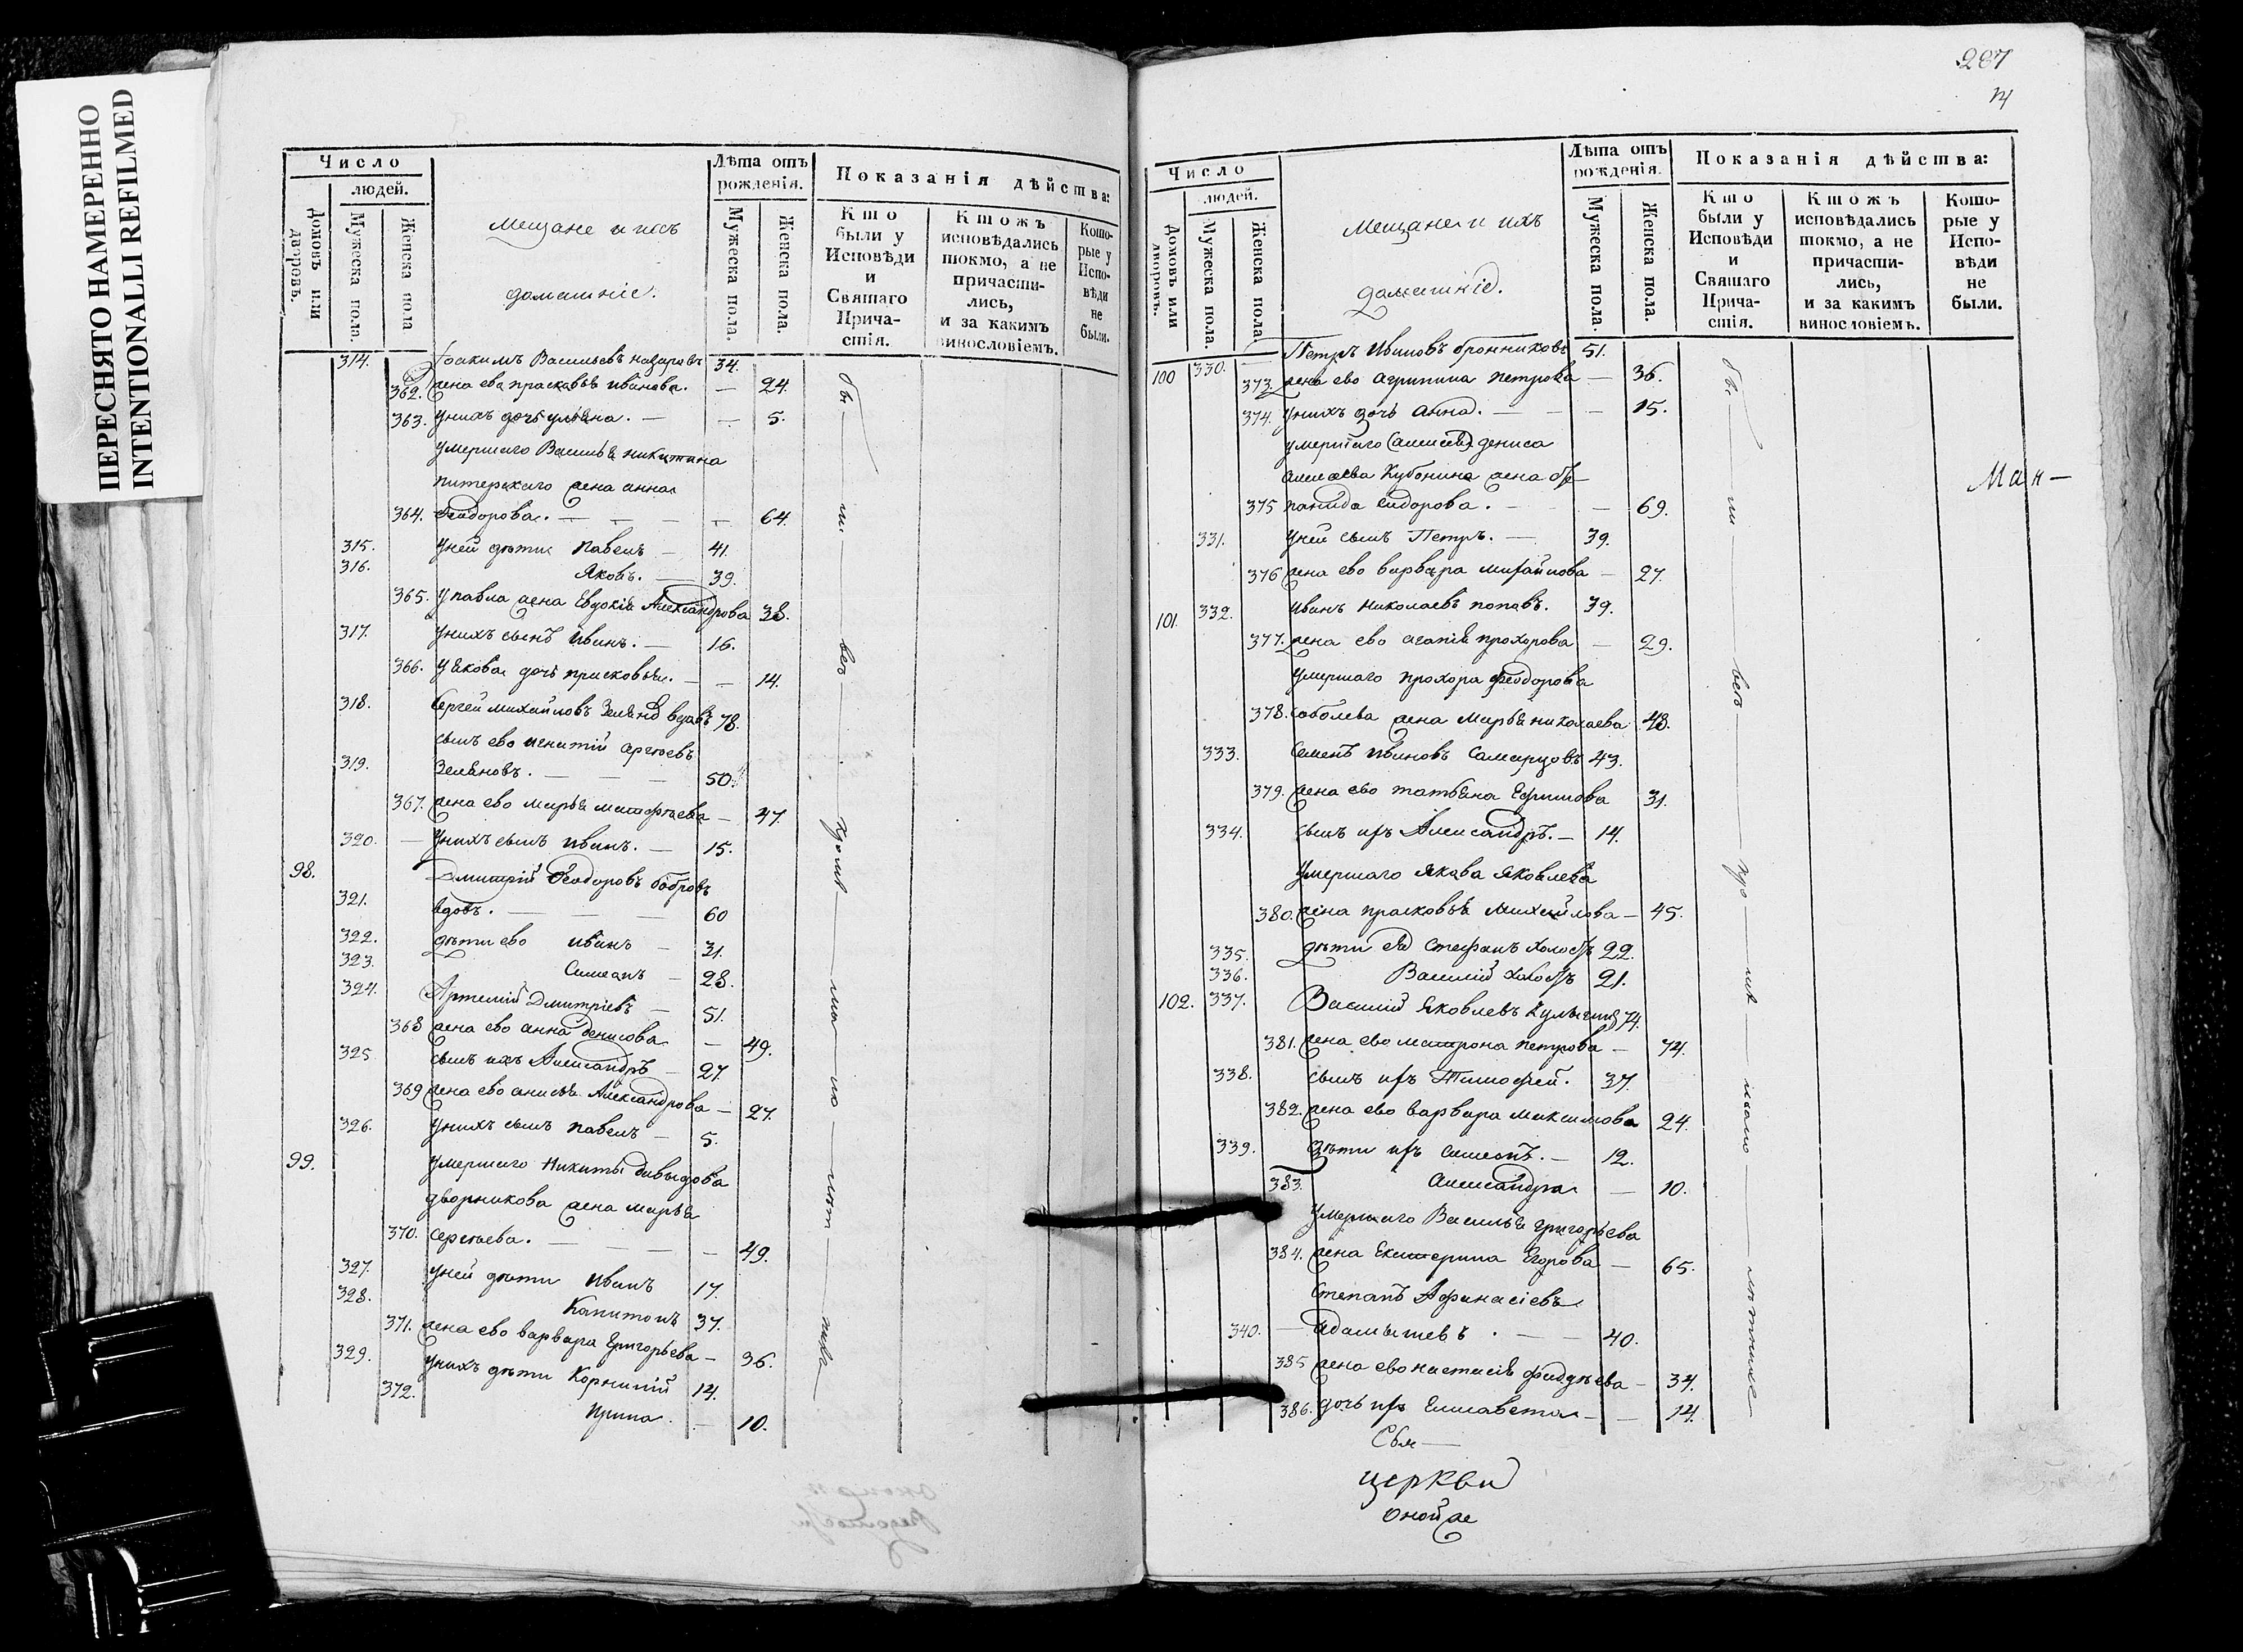 ПЕРЕСНЯТО НАМЕРЕННО
INTENTIONALLI REFILMED
Число
людей.
Домовъ или дворовъ.
Мужеска пола.
Женска пола
Мещане и ихъ
домашніе.
Лѣта отъ рожденія.
Мужеска пола.
Женска пола.
Показанія дѣйства:
Кто были у Исповѣди и Святаго Прича-стія.
Ктожъ исповѣдались токмо, а не причасти-лись, и за какимъ винословіемъ.
Кото-рые у Испо-вѣди не были.
314. Іоакимъ Васильевъ назаровъ 34.
362. жена ево праскавья иванова. — 24.
363. унихъ дочь ульяна. — — 5.
умершаго Василья никитина
питерскаго жена анна
364. Феодорова. — — — — 64.
315. уней дѣти Павелъ — 41.
316. Яковъ. — 39.
365. у павла жена Евдокія Александрова 38.
317. унихъ сынъ иванъ. — 16.
366. у якова дочь присковья. — — 14.
318. Сергей михайловъ вдовъ 78.
сынъ ево игнатій сергѣевъ
319. Зеляновъ. — — — 50.
367. жена ево марья матфѣева — 47.
320. — унихъ сынъ иванъ. — 15.
98. Дмитрій Феодоровъ бобровъ
321. вдовъ. — — — 60
322. дѣти ево иванъ — 31.
323. Симеонъ — 28.
324. Артемій Дмитріевъ — 51.
368 жена ево анна денисова — 49.
325. сынъ ихъ Александръ — 27.
369 жена ево анисья Александрова — 27.
326. унихъ сынъ павелъ — 5.
99. умершаго Никиты давыдова
дворникова жена марья
370. Сергѣева. — — — — 49.
327. уней дѣти иванъ 17.
328. Капитонъ 37.
371. жена ево варвара григорьева — 36.
329. унихъ дѣти Корнилій 14.
372. Ирина. — 10.
287
Число
людей.
Домовъ или дворовъ.
Мужеска пола.
Женска пола.
Мещане и ихъ
домашніе.
Лѣта отъ рожденія.
Мужеска пола.
Женска пола.
Показанія дѣйства:
Кто были у Исповѣди и Святаго Прича-стія.
Ктожъ исповѣдались токмо, а не причасти-лись, и за какимъ винословіемъ.
Кото-рые у Испо-вѣди не были.
100 330. Петръ ивановъ бронниковъ 51.
373. жена ево агрипина петрова — 36.
374. унихъ дочь анна. — — — 15.
умершаго дениса
алексѣева Кубонина жена
375 сидорова. — — 69.
331. уней сынъ Петръ. — 39.
376 жена ево варвара михайлова — 27.
101. 332. иванъ николаевъ поповъ. 39.
377. жена ево агапія прохорова — 29.
умершаго прохора феодорова
378. соболева жена марья николаева 48.
333. Семенъ ивановъ Самарцовъ 43.
379. жена ево татьяна Ефимова 31.
334. сынъ ихъ Александръ. — 14.
умершаго якова яковлева
380. жена прасковья михайлова — 45.
335. дѣти ея Стефанъ холостъ 22.
336. Василій холостъ 21.
102. 337. Василій Яковлевъ 74.
381. жена ево матрона петрова — 74.
338. сынъ ихъ Тимофей. 37.
382. жена ево варвара максимова 24.
339. дѣти ихъ симеонъ. — 12.
383. Александра — 10.
умершаго Василья григорьева
384. жена Екатерина Егорова — 65.
Степанъ Афанасіевъ
340. — Адамышевъ. — — 40.
385 жена ево настасія фаддѣева — 34.
386. дочь ихъ Елисавета — — 14.
Ман—
церкви
оной же